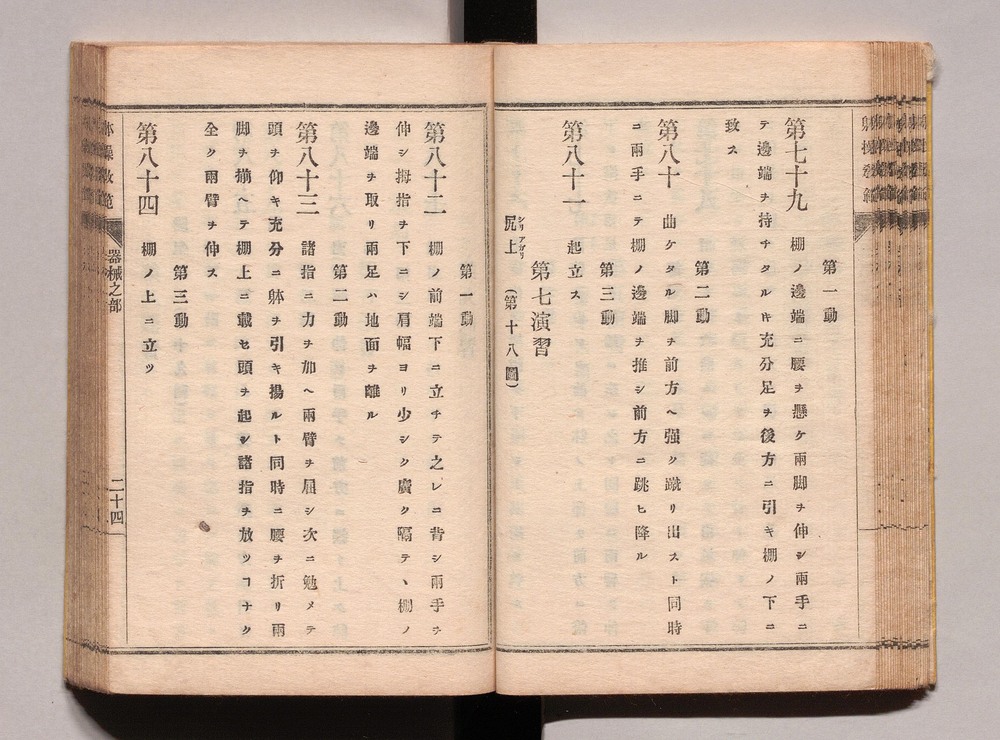 第一動
第七十九　棚ノ邊端ニ腰ヲ懸ケ兩脚ヲ伸シ兩手ニ
テ邊端ヲ持チタル𪜈充分足ヲ後方ニ引キ棚ノ下ニ
致ス
第二動
第八十　曲ケタル脚ヲ前方ヘ强ク蹴リ出スト同時
ニ兩手ニテ棚ノ邊端ヲ推シ前方ニ跳ヒ降ル
第三動
第八十一　起立ス
第七演習
尻上シリアガリ（第十八圖）
第一動
第八十二　棚ノ前端下ニ立チテ之レニ背シ兩手ヲ
伸シ拇指ヲ下ニシ肩幅ヨリ少シク廣ク隔テヽ棚ノ
邊端ヲ取リ兩足ハ地面ヲ離ル
第二動
第八十三　諸指ニ力ヲ加ヘ兩臂ヲ屈シ次ニ勉メテ
頭ヲ仰キ充分ニ躰ヲ引キ揚ルト同時ニ腰ヲ折リ兩
脚ヲ揃ヘテ棚上ニ載セ頭ヲ起シ諸指ヲ放ツヿナク
全ク兩臂ヲ伸ス
第三動
第八十四　棚ノ上ニ立ツ
器械之部
二十四